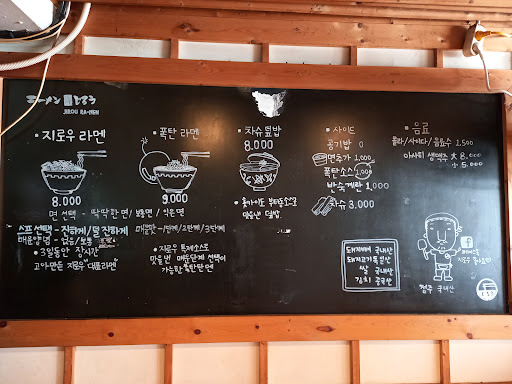 ラーメン じろう
JIROU RAMEN
• 지로우 라멘
8.000
면 선택 - 딱딱한면 / 보통면 / 익은면
스프 선택 - 진하게 / 덜 진하게
매운양념 - 없음/보통
• 3일동안 장시간
고아만든 지로우 대표라멘
• 폭탄 라멘
9.000
매운맛 - 1단계/2단계/3단계
• 지로우 특제소스로
만들번 매운단계 선택이
가능한 폭탄라멘
• 차슈덮밥
8.000
만들번 덮밥.
• 사이드
공기밥 0
면추가 1,000
폭탄소스 1,000
반숙계란 1,000
차슈 3.000
• 음료
콜라/사이다/음료수 1.500
아사히 생맥주 大 8.000
小 5.000
돼지뼈 국내산
돼지고기 독일산
쌀 국내산
김치 중국산